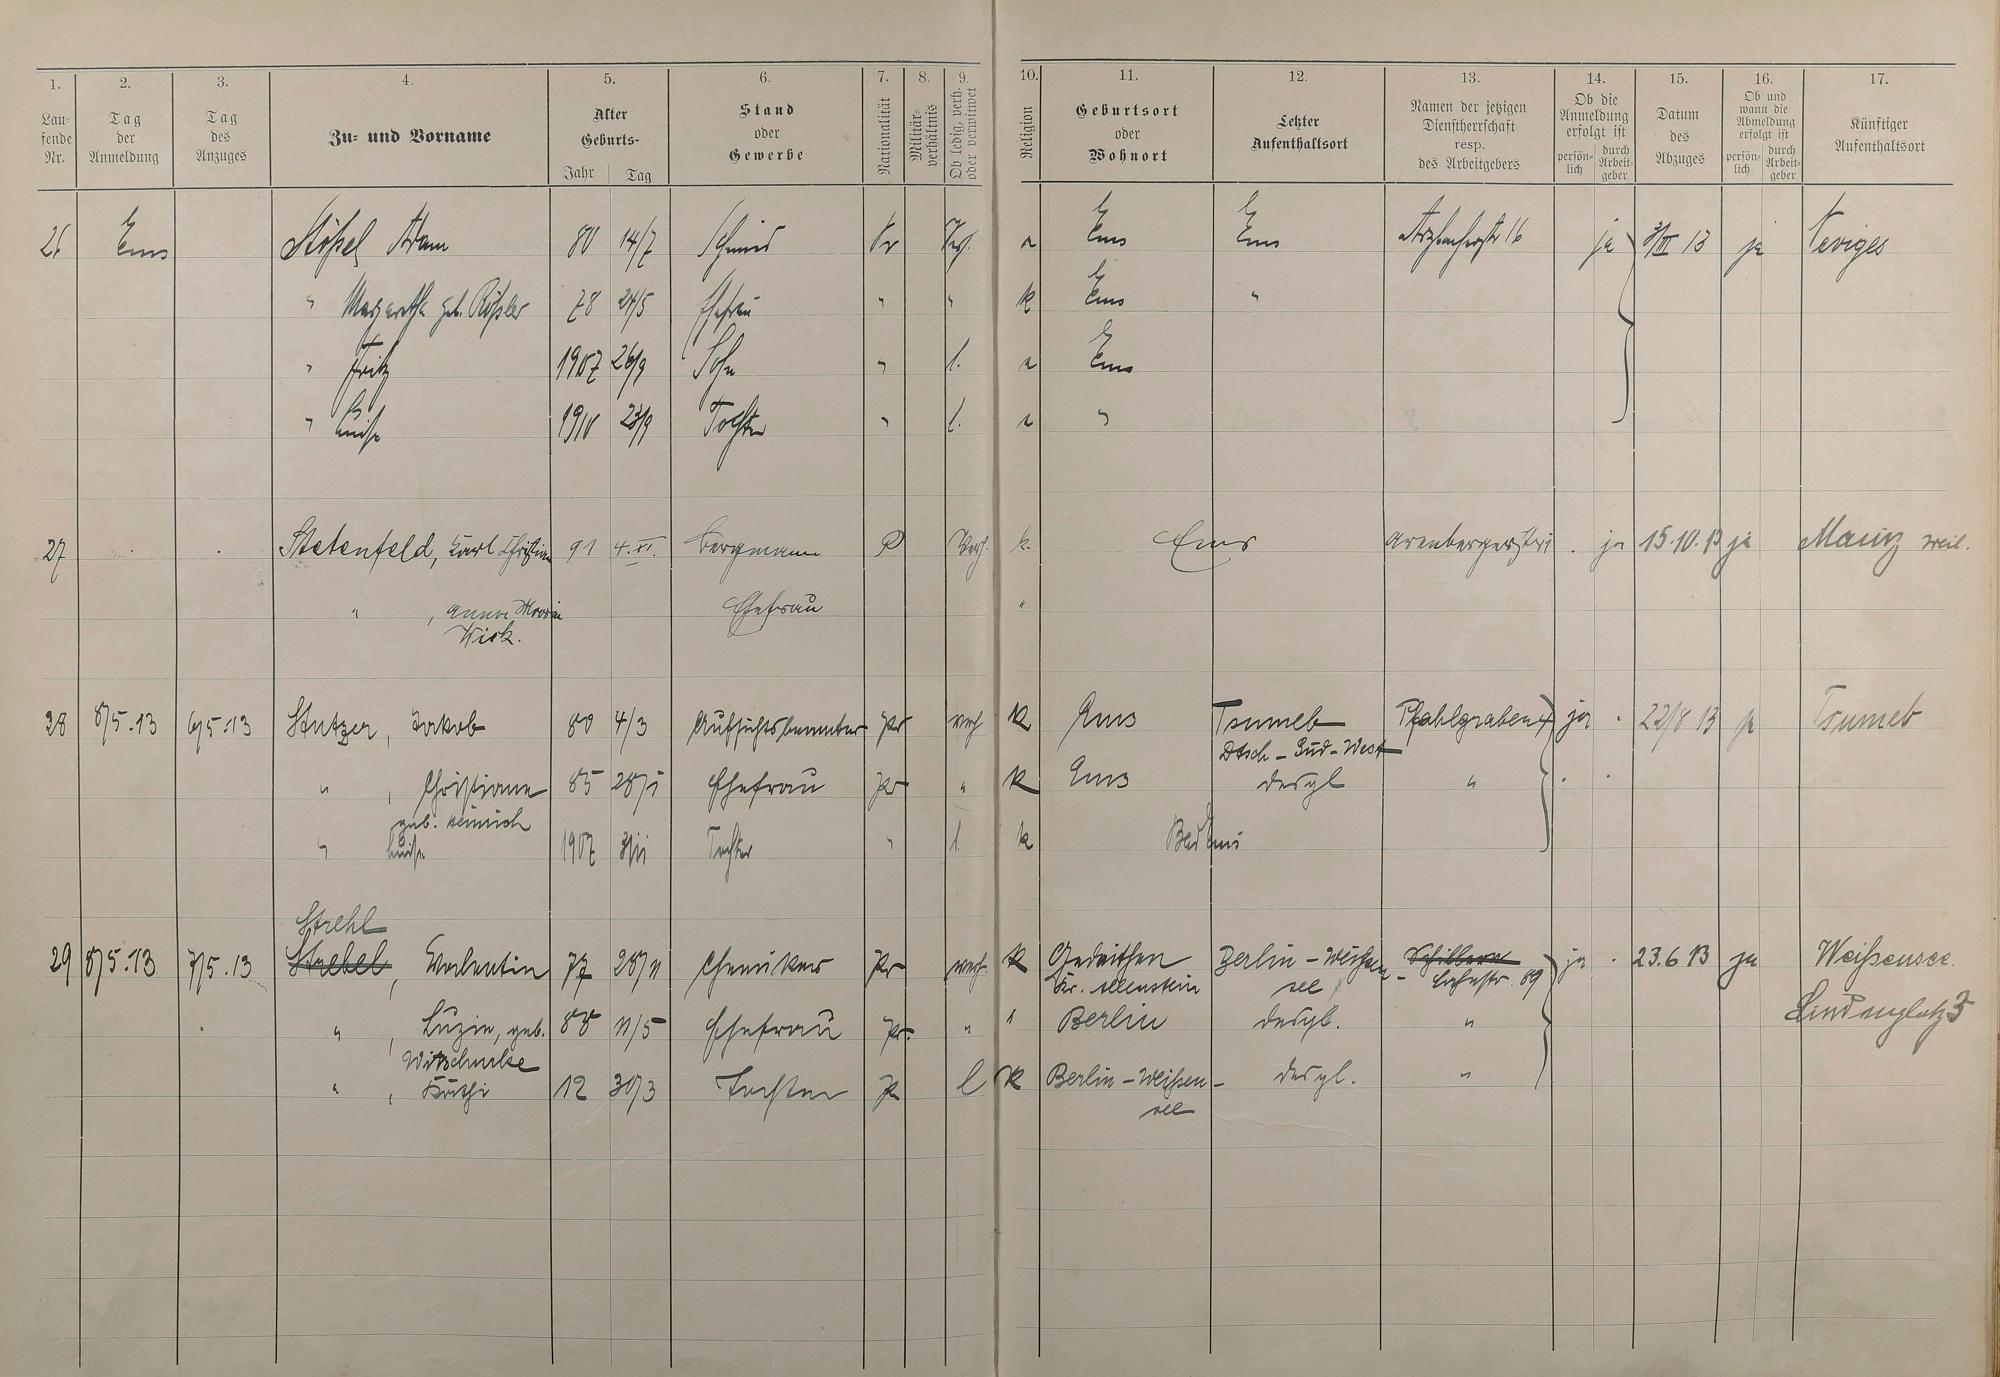 1. 2. 3. 4. 5. 6. 7. 8. 9. 10. 11. 12. 13. 14. 15. 16. 17.
Laufende Nr.
Tag der Anmeldung
Tag des Anzuges
Zu- und Vorname
Alter Geburts- Jahr Tag
Stand oder Gewerbe
Nationalität
Militärverhältnis
Ob ledig, verh. oder verwitwet
Religion
Geburtsort oder Wohnort
Letzter Aufenthaltsort
Namen der jetzigen Dienstherrschaft resp. des Arbeitgebers
Ob die Anmeldung erfolgt ist persönlich durch Arbeitgeber
Datum des Abzuges
Ob und wann die Abmeldung erfolgt ist persönlich durch Arbeitgeber
Künftiger Aufenthaltsort
26 Ems Stößel Adam 80 14/7 Schmied Pr Verh. Ems Ems 16 ja 13 ja Neviges
" Margaretha geb. Rößler 78 24/5 Ehefrau " " k Ems "
" Fritz 1907 26/9 Sohn " l. Ems
" Luise 1910 23/9 Tochter " l. "
27 Stetenfeld, Karl Christian 91 4.XI. Bergmann P Verh. k. Ems Arenbergerstr ja 15.10.13 ja Mainz
" , Anna Maria Ehefrau "
28 8/5.13 6/5.13 Stutzer, Jakob 80 4/3 Aufsichtsbeamter Pr verh k Ems Tsumeb Pfahlgraben ja 22/8 13 ja Tsumeb
Dtsch-Süd-West
" , Christiane 85 28/1 Ehefrau Pr " k Ems desgl "
geb. Heinrich
" Luise 1907 Tochter " l. k Bad Ems
Strehl
29 8/5.13 7/5.13 Strebel, Valentin 77 28/11 Pr verh. k Berlin-Weißen- Lahnstr. 89 ja 23.6 13 ja Weißensee.
Kr. Allenstein see
" , Luzie, geb. 88 11/5 Ehefrau Pr. " " Berlin desgl. " Lindenplatz 3
" , Käthi 12 30/3 Tochter Pr l k Berlin-Weißen- desgl. "
see